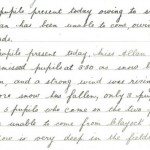 pupils present today owing to s
an has been unable to come owin
ds.
upils present today. Miss Allan
missed pupils at 2.30 as snow b
n, and a strong wind was
ore snow has fallen, only 3 pup
3 pupils who came on the
unable to come from
now is very deep in the fields